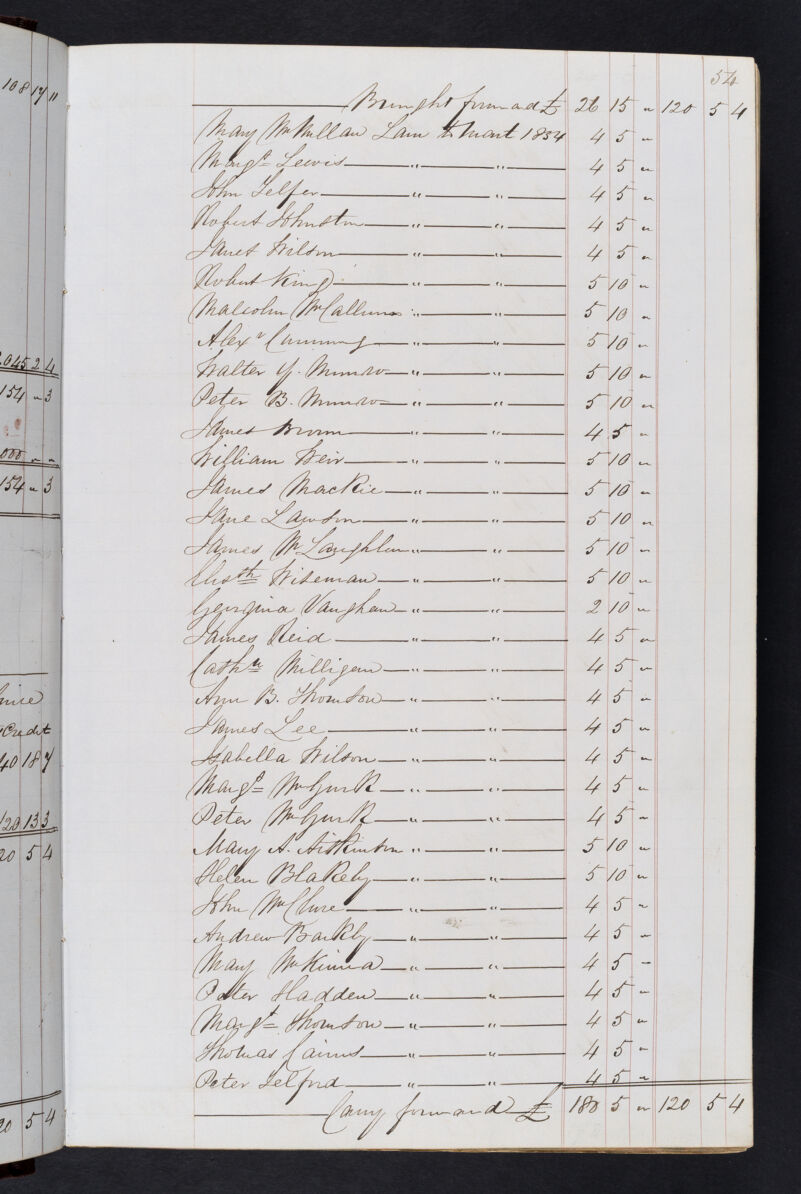 108 17 "
2045 2 4
154 " 3
000 " "
154 " 3
Credit
40 18 7
120 13 3
20 5 4
20 5 4
54
Brought forward £ 26 15 " 120 5 4
Mary McMillan Lam to Mart 1854 4 5 "
Margt Lewis " " 4 5 "
John Telfer " " 4 5 "
Robert Johnston " " 4 5 "
Janet Wilson " " 4 5 "
Robert King " " 5 10 "
Malcolm McCallum " " 5 10 "
Alexr Cumming " " 5 10 "
Walter Y. Munro " " 5 10 "
Peter B. Munro " " 5 10 "
James Brown " " 4 5 "
William Weir " " 5 10 "
James Mackie " " 5 10 "
Jane Lawson " " 5 10 "
James McLaughlan " " 5 10 "
Elisth Wiseman " " 5 10 "
Georgina Vaughan " " 2 10 "
James Reid " " 4 5 "
Cathn Milligan " " 4 5 "
Ann B. Thomson " " 4 5 "
James Lee " " 4 5 "
Isabella Wilson " " 4 5 "
Margt McGurk " " 4 5 "
Peter McGurk " " 4 5 "
Mary A. Aitkinson " " 5 10 "
Helen Blakely " " 5 10 "
John McClure " " 4 5 "
Andrew Barkly " " 4 5 "
Mary McKinna " " 4 5 "
Peter Hadden " " 4 5 "
Margt Thomson " " 4 5 "
Thomas Cairns " " 4 5 "
Peter Telford " " 4 5 "
Carry forward £ 180 5 " 120 5 4